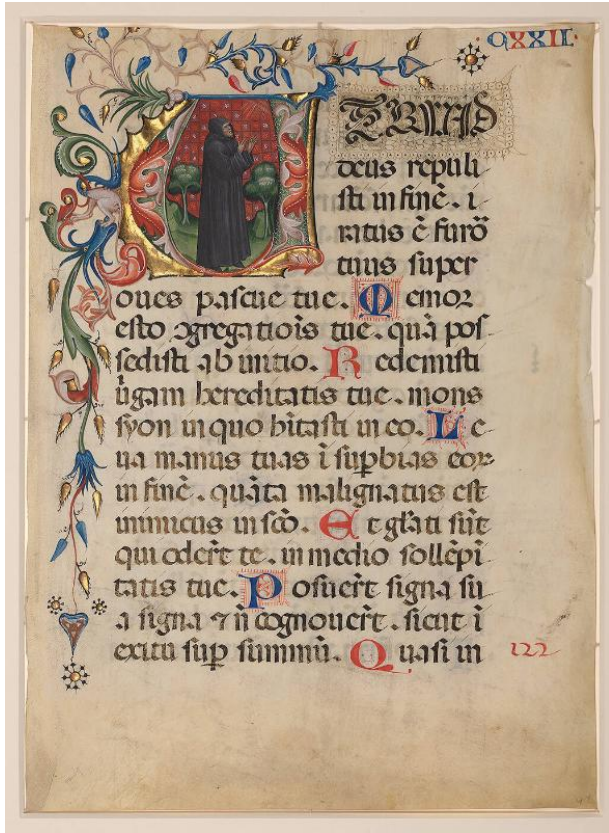 ·CXXII·
UT QUID
deus repuli
sti in finē. i
ratus ē furō
tuus super
oues pascue tue. Memor
esto ꝯgregatiōis tue. quā pos
sedisti ab initio. Redemisti
ūgam hereditatis tue. mons
syon in quo hītasti in eo. Le
ua manus tuas ī supbias eoꝝ
in finē. quāta malignatus est
inimicus in scō. Et glāti sūt
qui oderūt te. in medio sollēpī
tatis tue. Posuerūt signa su
a signa ⁊ ñ cognouerūt. sicut ī
exitu sup summū. Quasi in
122